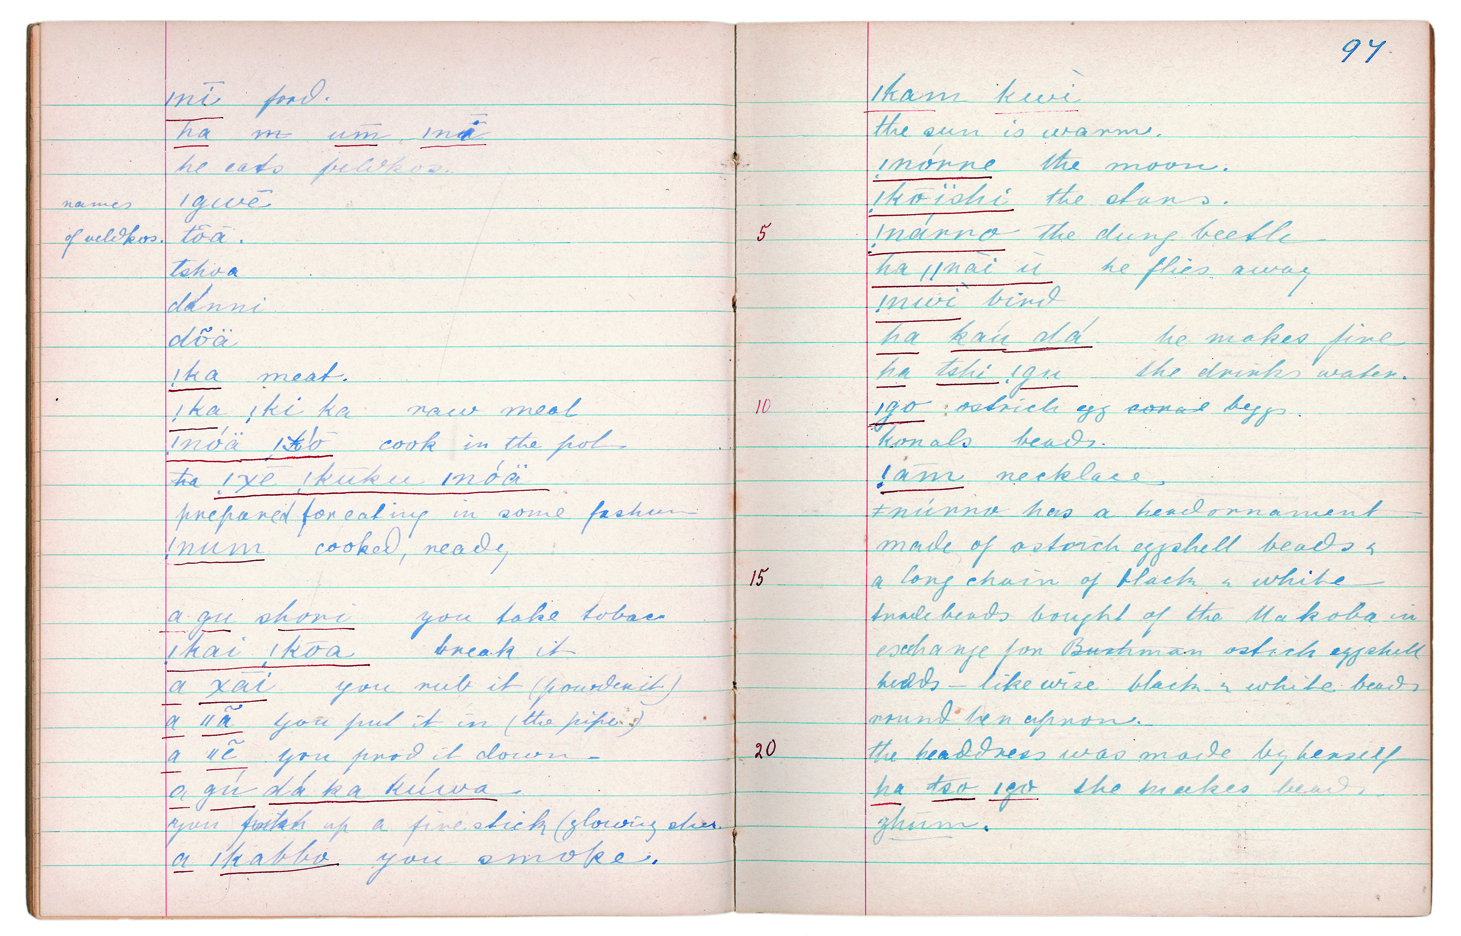 ǀnī food.
ha m um̄ ǀnā
he eats veldkos.
names ǀgwē
of veldkos. tōā.
tshoa
dánni
dõä
ǃka meat.
ǃka ǃki ka raw meat
ǃnóä ǃkō cook in the pot
ha ǃxē ǃkūku ǀnóä
prepared for eating in some fashion
ǃnum cooked, ready
a gu shori you take tobac
ǃkai ǃkōa break it
a xāi you rub it (powder it)
a ǁã you put it in (the pipe)
a ǁẽ you prod it down
a gú dá ka kúwa
you fetch up a fire stick (glowing
a ǀkabbo you smoke.
97
ǀkam kwì
the sun is warm.
ǃnórne the moon.
ǃkōïshi the stars.
5 ǃnárro the dung beetle
ha ǁnāi ū he flies away
ǃnwì bird
ha kaú dá he makes fire
ha tshi ǃgu she drinks water.
10 ǃgo ostrich egg
konals beads.
ǃām necklace
ǂnúrro has a headornament
made of ostrich eggshell beads &
15 a long chain of black & white
trade beads bought of the Makoba in
exchange for Bushman ostrich eggshell
beads – likewise black & white beads
round her apron.
20 the headdress was made by herself
ha tso ǀgo she makes beads
ghum.